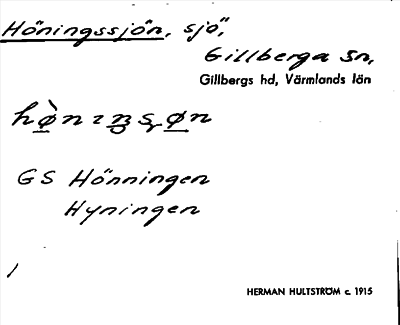 Höningssjön, sjö,
Gillberga sn,
Gillbergs hd, Värmlands län
hø̀nɪŋsʂøn
GS Hönningen
Hyningen
/
HERMAN HULTSTRÖM c. 1915